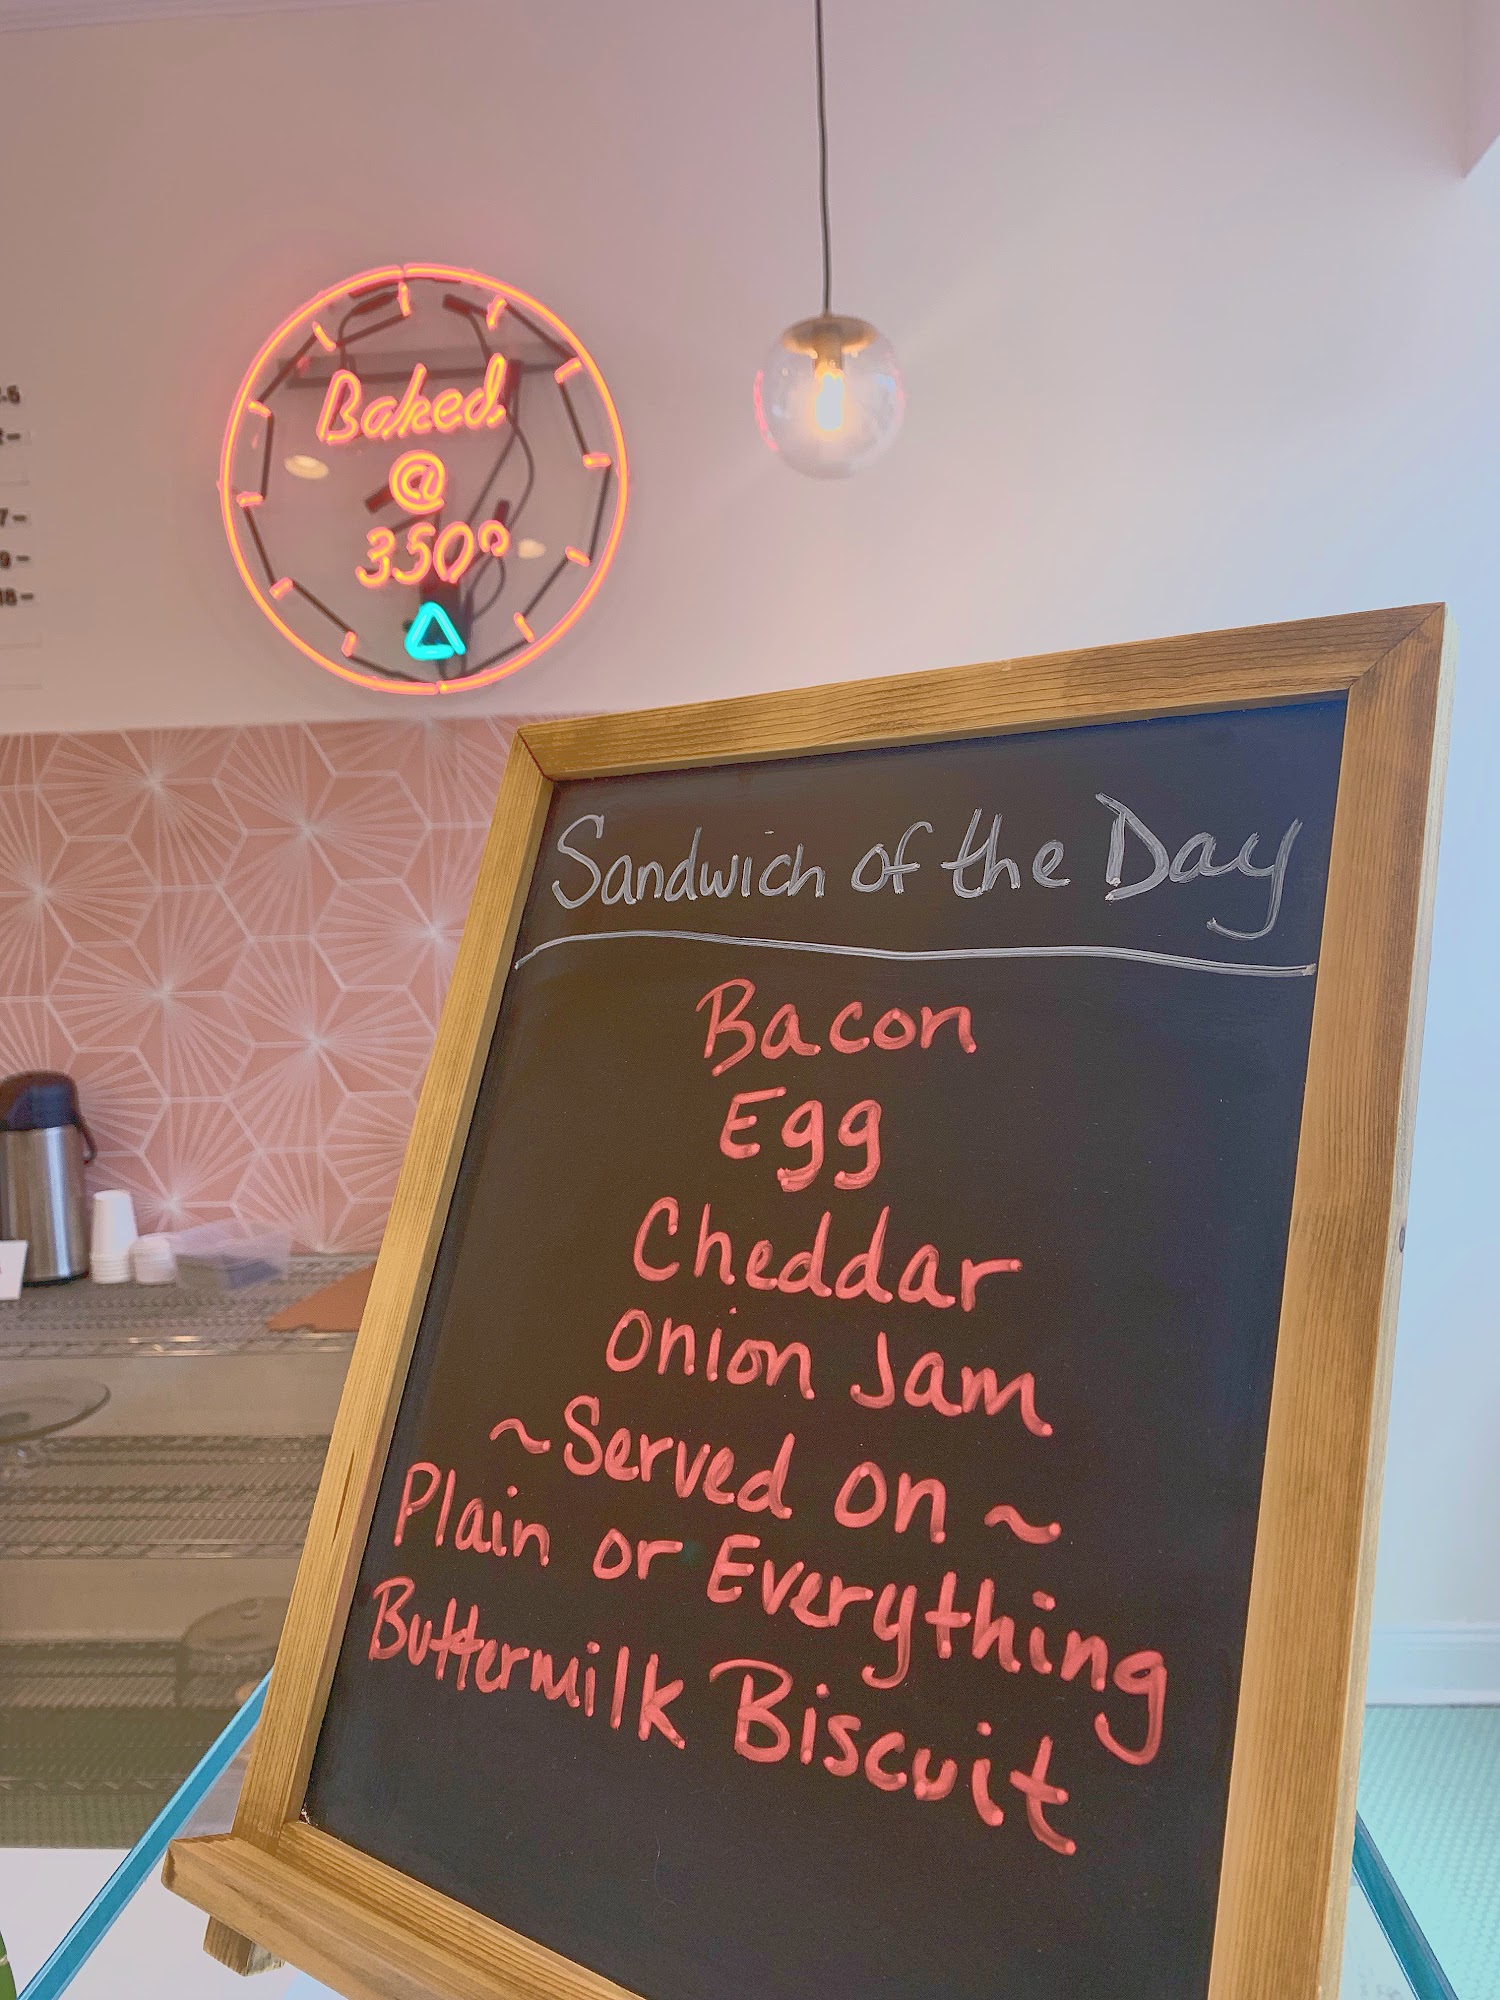 Baked
@
350°
Sandwich of the Day
Bacon
Egg
Cheddar
Onion Jam
~Served on~
Plain or Everything
Buttermilk Biscuit